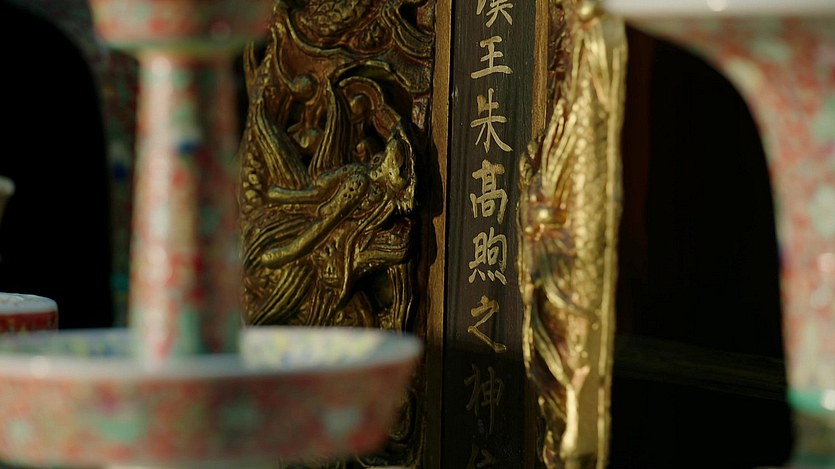 漢王朱高煦之神